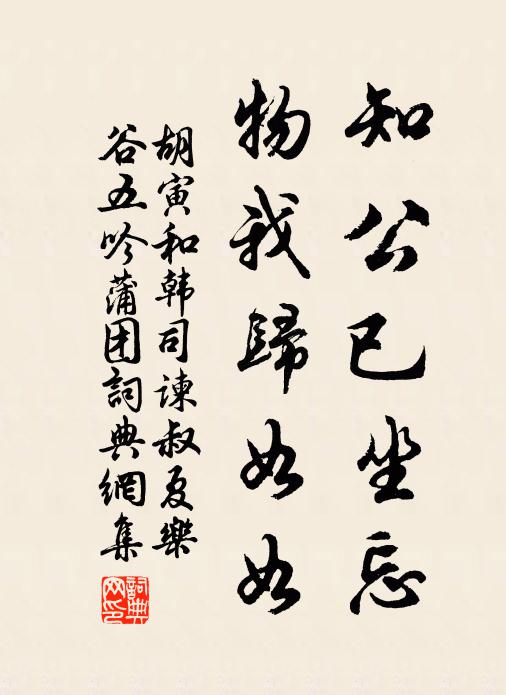 知公已坐忘
物我歸如如
胡寅和韩司諫叔夏樂
谷五吟蒲团詞典網集
詞典网印